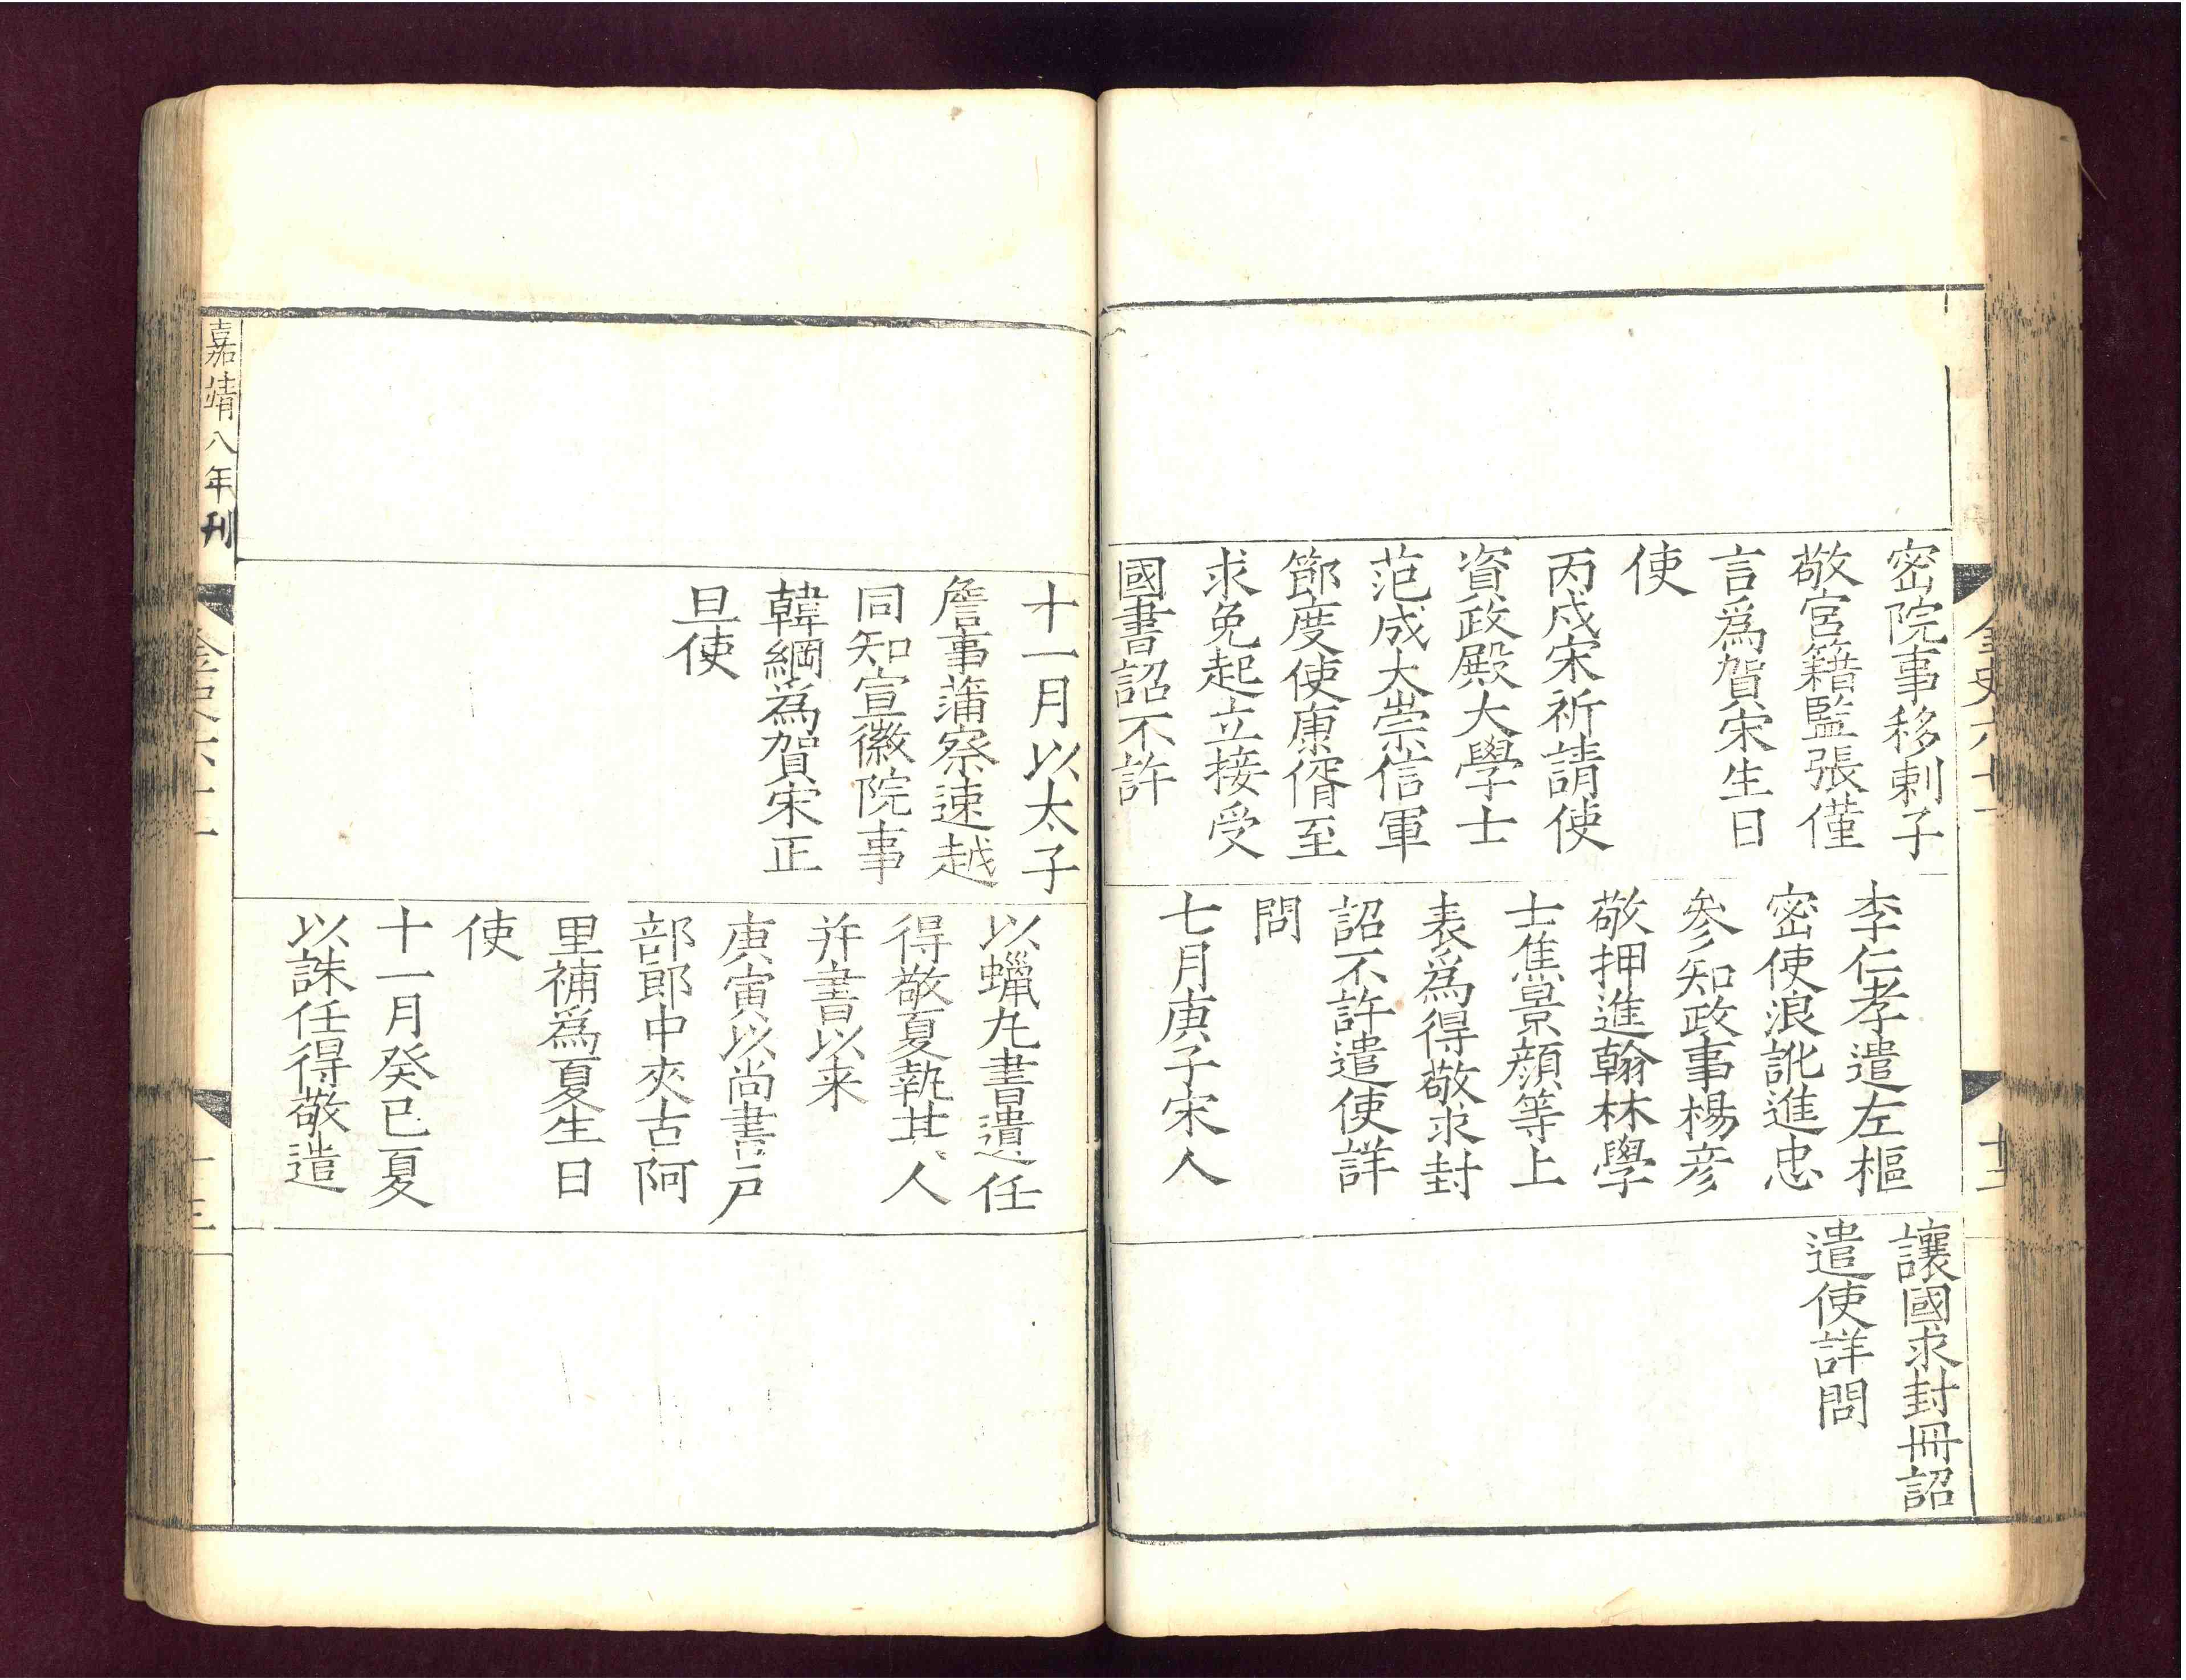 密院事移剌子
敬宮籍監張僅
言爲賀宋生日
使
丙戍宋祈請使
資政殿大學士
范成大崇信軍
節度使康湑至
求免起立接受
國書詔不許
李仁孝遣左樞
密使浪訛進忠
參知政事楊彦
敬押進翰林學
士焦景顔等上
表爲得敬求封
詔不許遣使詳
問
七月庚子宋人
讓國求封冊詔
遣使詳問
十一月以太子
詹事蒲察速越
同知宣徽院事
韓綱爲賀宋正
旦使
以蠟丸書遺任
得敬夏執其人
并書以来
庚寅以尚書戸
部郎中夾古阿
里補爲夏生日
使
十一月癸巳夏
以誅任得敬遣
嘉靖八年刊